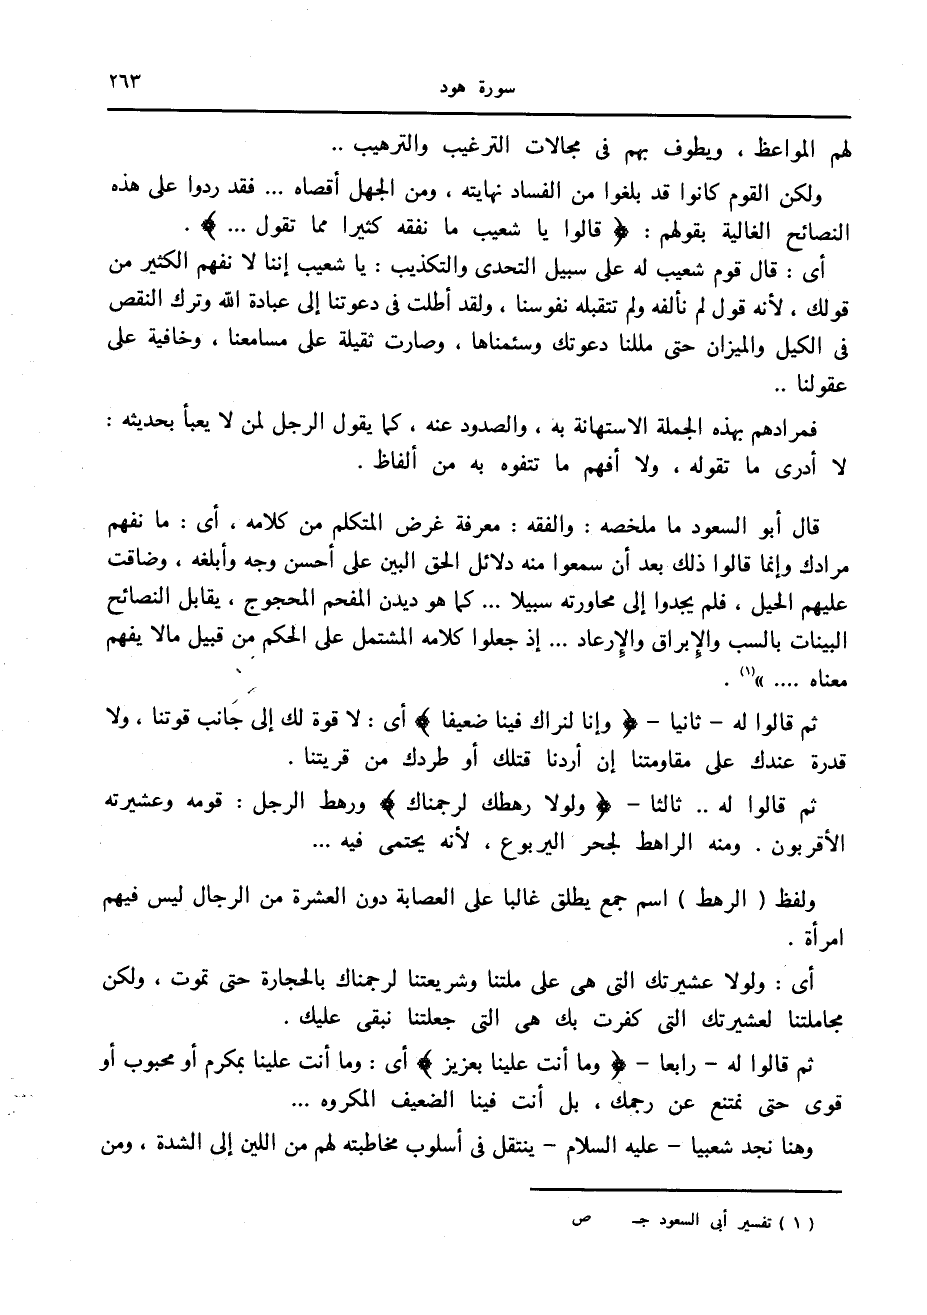 سورة هود ٢٦٣
لهم المواعظ ، ويطوف بهم فى مجالات الترغيب والترهيب ..
ولكن القوم كانوا قد بلغوا من الفساد نهايته ، ومن الجهل أقصاه ... فقد ردوا على هذه
النصائح الغالية بقولهم : ﴿ قالوا يا شعيب ما نفقه كثيرا مما تقول ... ﴾ .
أى : قال قوم شعيب له على سبيل التحدى والتكذيب : يا شعيب إننا لا نفهم الكثير من
قولك ، لأنه قول لم نألفه ولم تتقبله نفوسنا ، ولقد أطلت فى دعوتنا إلى عبادة الله وترك النقص
فى الكيل والميزان حتى مللنا دعوتك وسئمناها ، وصارت ثقيلة على مسامعنا ، وخافية على
عقولنا ..
فمرادهم بهذه الجملة الاستهانة به ، والصدود عنه ، كما يقول الرجل لمن لا يعبأ بحديثه :
لا أدرى ما تقوله ، ولا أفهم ما تتفوه به من ألفاظ .
قال أبو السعود ما ملخصه : والفقه : معرفة غرض المتكلم من كلامه ، أى : ما نفهم
مرادك وإنما قالوا ذلك بعد أن سمعوا منه دلائل الحق البين على أحسن وجه وأبلغه ، وضاقت
عليهم الحيل ، فلم يجدوا إلى محاورته سبيلا ... كما هو ديدن المفحم المحجوج ، يقابل النصائح
البينات بالسب والإبراق والإرعاد ... إذ جعلوا كلامه المشتمل على الحكم من قبيل مالا يفهم
معناه .... »(١) .
ثم قالوا له – ثانيا – ﴿ وإنا لنراك فينا ضعيفا ﴾ أى : لا قوة لك إلى جانب قوتنا ، ولا
قدرة عندك على مقاومتنا إن أردنا قتلك أو طردك من قريتنا .
ثم قالوا له .. ثالثا – ﴿ ولولا رهطك لرجمناك ﴾ ورهط الرجل : قومه وعشيرته
الأقربون . ومنه الراهط لجحر اليربوع ، لأنه يحتمى فيه ...
ولفظ ( الرهط ) اسم جمع يطلق غالبا على العصابة دون العشرة من الرجال ليس فيهم
امرأة .
أى : ولولا عشيرتك التى هى على ملتنا وشريعتنا لرجمناك بالحجارة حتى تموت ، ولكن
مجاملتنا لعشيرتك التى كفرت بك هى التى جعلتنا نبقى عليك .
ثم قالوا له – رابعا – ﴿ وما أنت علينا بعزيز ﴾ أى : وما أنت علينا بمكرم أو محبوب أو
قوى حتى نمتنع عن رجمك ، بل أنت فينا الضعيف المكروه ...
وهنا نجد شعيبا – عليه السلام – ينتقل فى أسلوب مخاطبته لهم من اللين إلى الشدة ، ومن
( ١ ) تفسير أبى السعود جـ ص